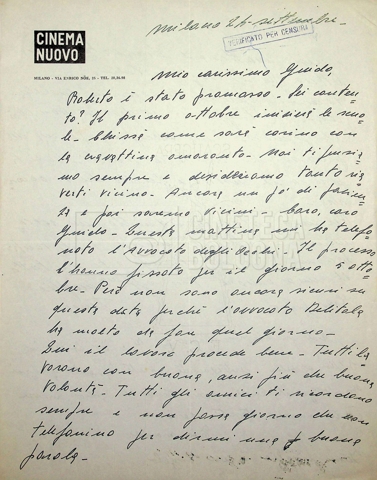 CINEMA
NUOVO
Milano 24 settembre -
VERIFICATO PER CENSURA
MILANO - VIA ENRICO NÖE, 23 - TEL.
Mio carissimo Guido,
Roberto è stato promosso - Sei conten-
to? Il primo ottobre inizierà le scuo-
le - Chissà come sarà carino con
la cravattina amaranto - Noi ti pensia-
mo sempre e desideriamo tanto ria-
verti vicino - Ancora un po' di pazien-
za e poi saremo vicini - Caro, caro
Guido - Questa mattina mi ha telefo-
nato l'Avvocato degli Occhi - Il processo
l'hanno fissato per il giorno 5 otto-
bre - Però non sono ancora sicuri su
questa data perchè l'avvocato Delitala
ha molto da fare quel giorno -
Qui il lavoro procede bene - Tutti la-
vorano con buona, anzi più che buona
volontà - Tutti gli amici ti ricordano
sempre e non passa giorno che non
telefonino per dirmi una buona
parola -